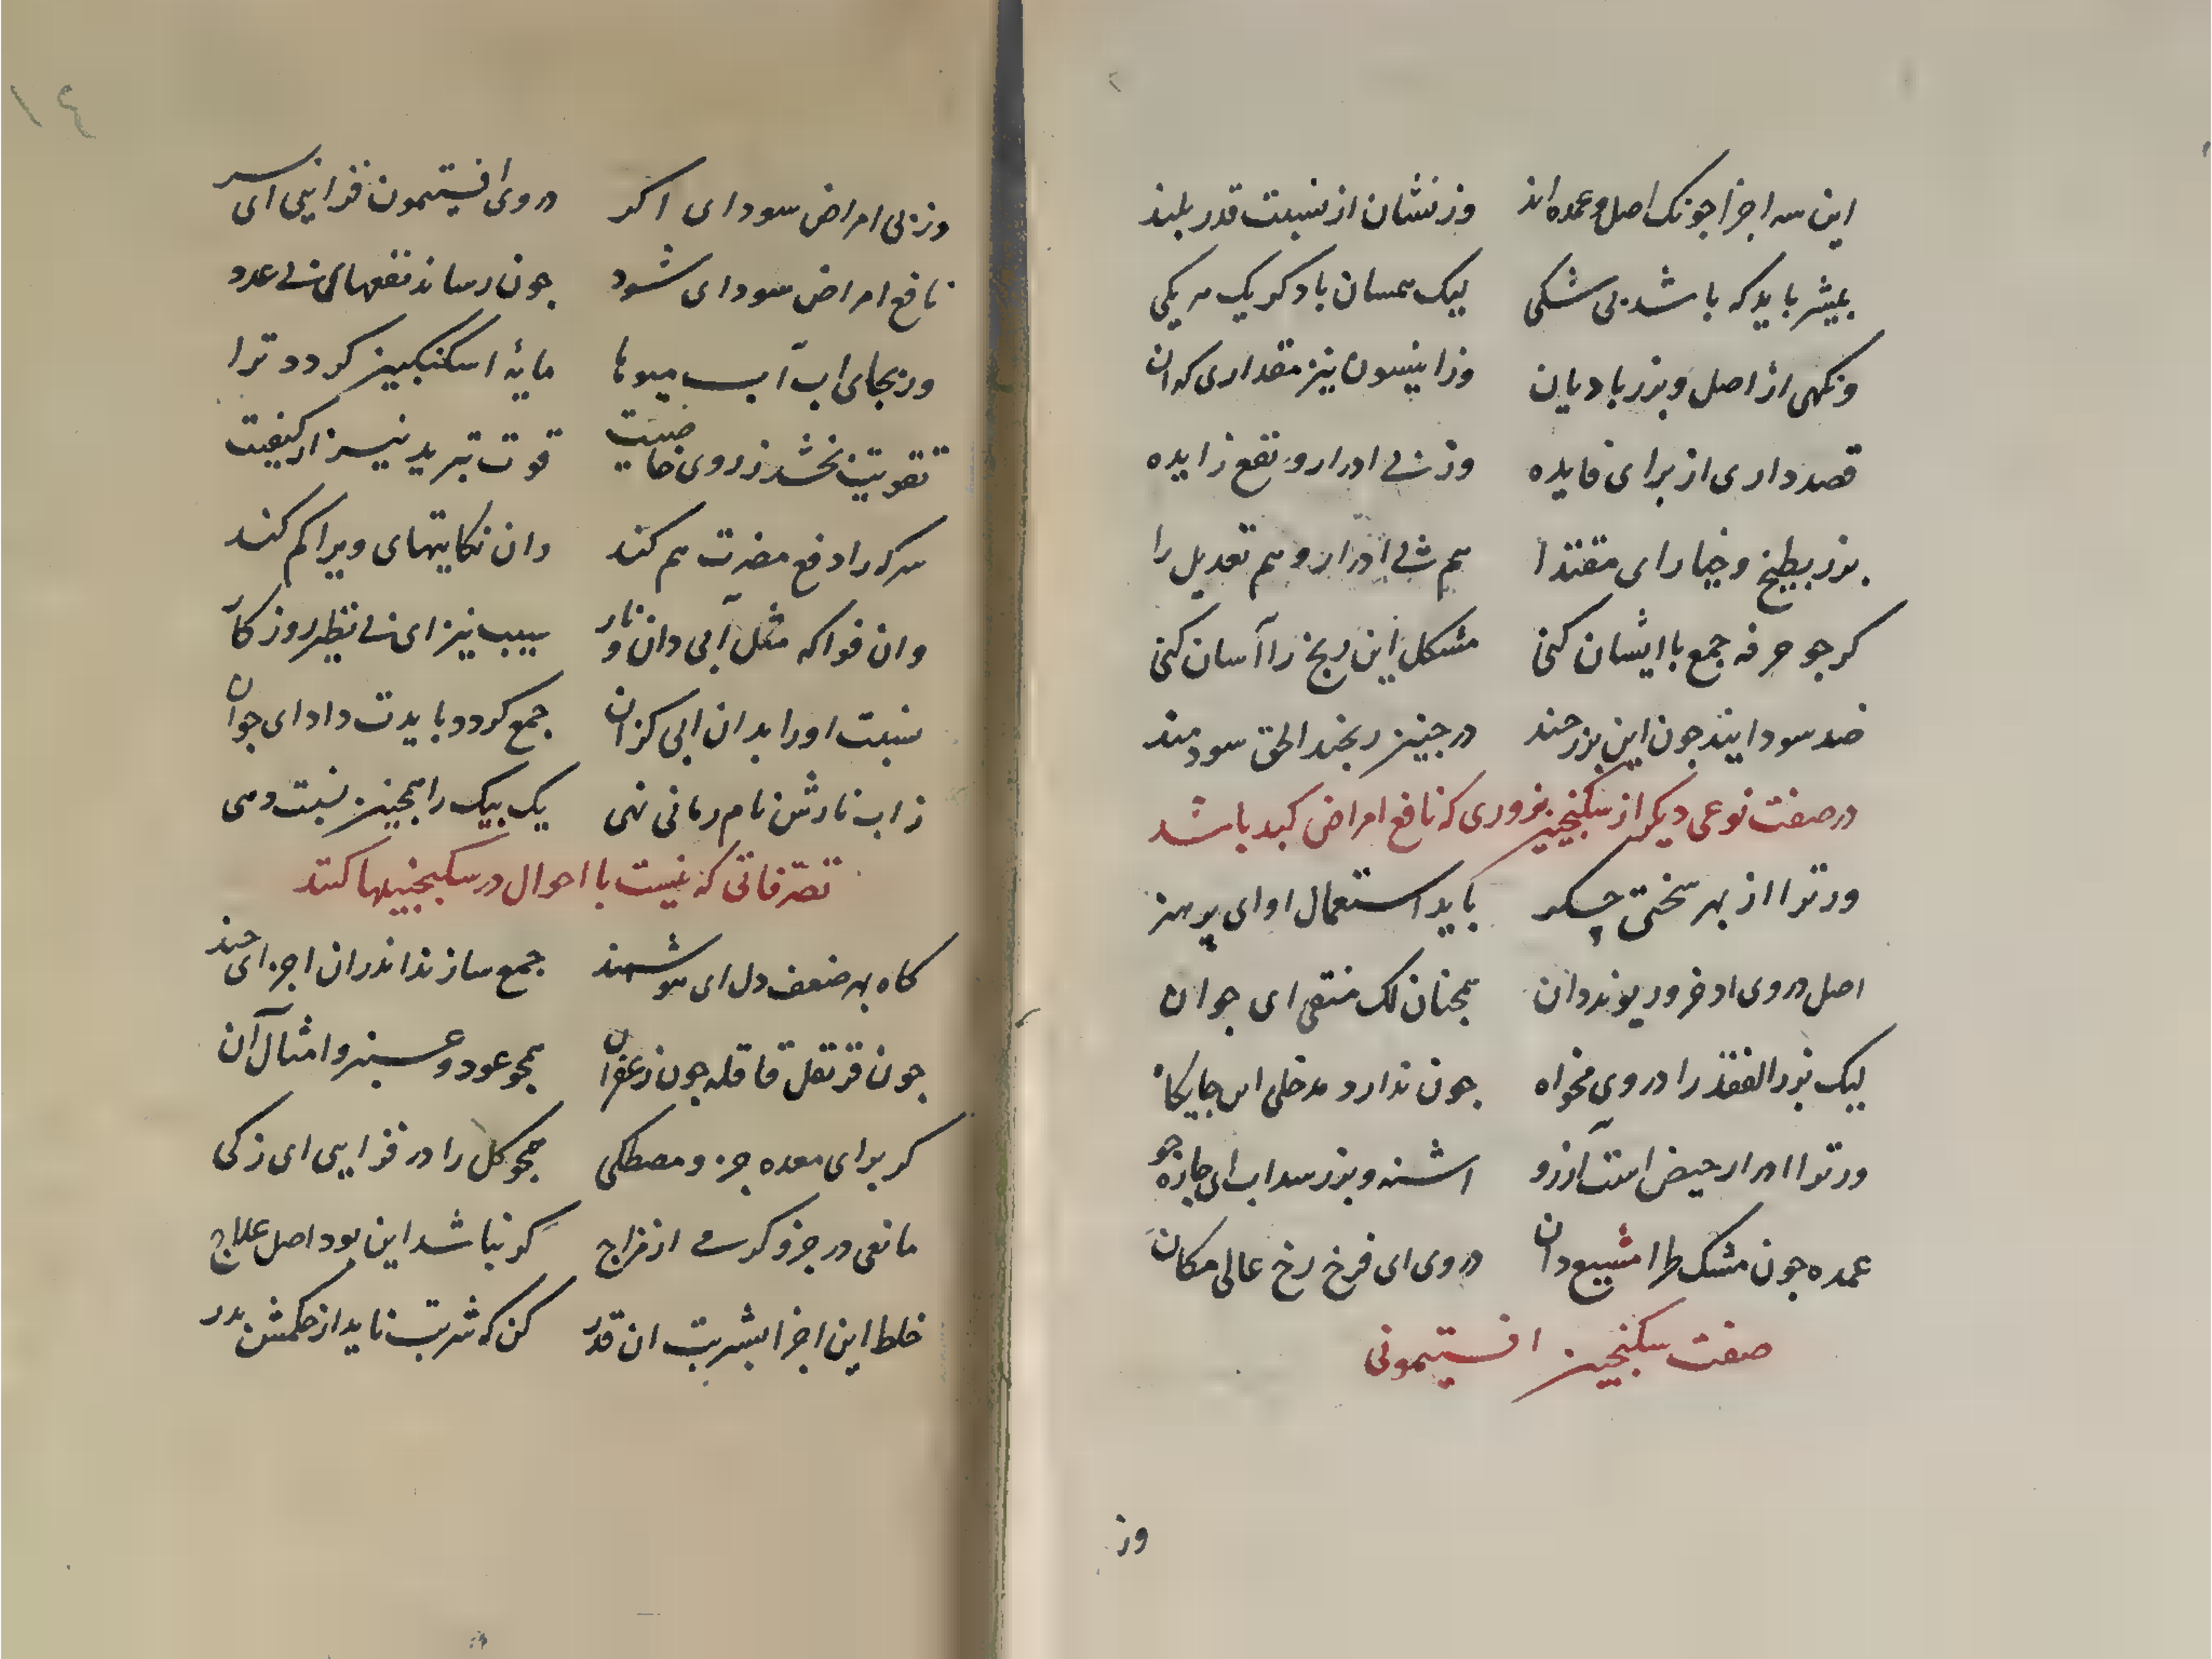 این سه اجزا جونک اصل و عمده اند وزنشان از نسبت قدر بلند
بیشتر باید که باشد بی شکی لیک همسان با دکر یک هر یکی
ونکهی از اصل و بزر بادیان وز انیسون نیز مقداری که ان
قصد داری از برای فایده وز پی ادرار و نفع زایده
بزر بطیخ و خیار ای مقتدا هم پی ادرار و هم تعدیل را
کر جو خرفه جمع با ایشان کنی مشکل این رنج را آسان کنی
ضد سودایند جون این بزر جند در جنین رنجند الحق سودمند
در صفت نوعی دیکر از سکنجبین بزوری که نافع امراض کبد باشد
ور ترا از بهر سختی جکر باید استعمال او ای پر هنر
اصل در وی اذخر و ریوند دان همجنان لک منقی ای جوان
لیک بزر الفقد را در وی مخواه جون ندارد مدخلی اس جایکاه
ور ترا ادرار حیض است آرزو اشنه و بزر سداب ای جاره جو
عمده جون مشک طرا مشیع دان در وی ای فرخ رخ عالی مکان
صفت سکنجبین افستیمونی
وز
۱۴
وز پی امراض سودای اکر در وی افستیمون فزایی ای سر
نافع امراض سودای شود جون رساند نفعهای بی عدد
ور بجای اب آب میوها مایۀ اسکنکبین کردد ترا
تقویت بخشد ز روی خاصیت قوت تبرید نیز از کیفیت
سرکه را دفع مضرت هم کند وان نکایتهای ویرا کم کند
وان فواکه مثل آبی دان و نار سیب نیز ای بی نظیر روزکار
نسبت اورا بدان ابی کزان جمع کردد بایدت داد ای جوان
ز اب نارش نام رمانی نهی یک بیک را همجنین نسبت دهی
تصرفاتی که نیست با احوال در سکنجبینها کنند
کاه بهر ضعف دل ای هوشمند جمع سازند اندران اجزای جند
جون قرنفل قاقله جون زعفران همجو عود و عنبر و امثال آن
کر برای معده جزو مصطکی همجو کل را در فزایی ای زکی
مانعی در جزو کرمی از مزاج کر نباشد این بود اصل علاج
خلط این اجزا بشربت ان قدر کن که شربت ناید از حکمش بدر